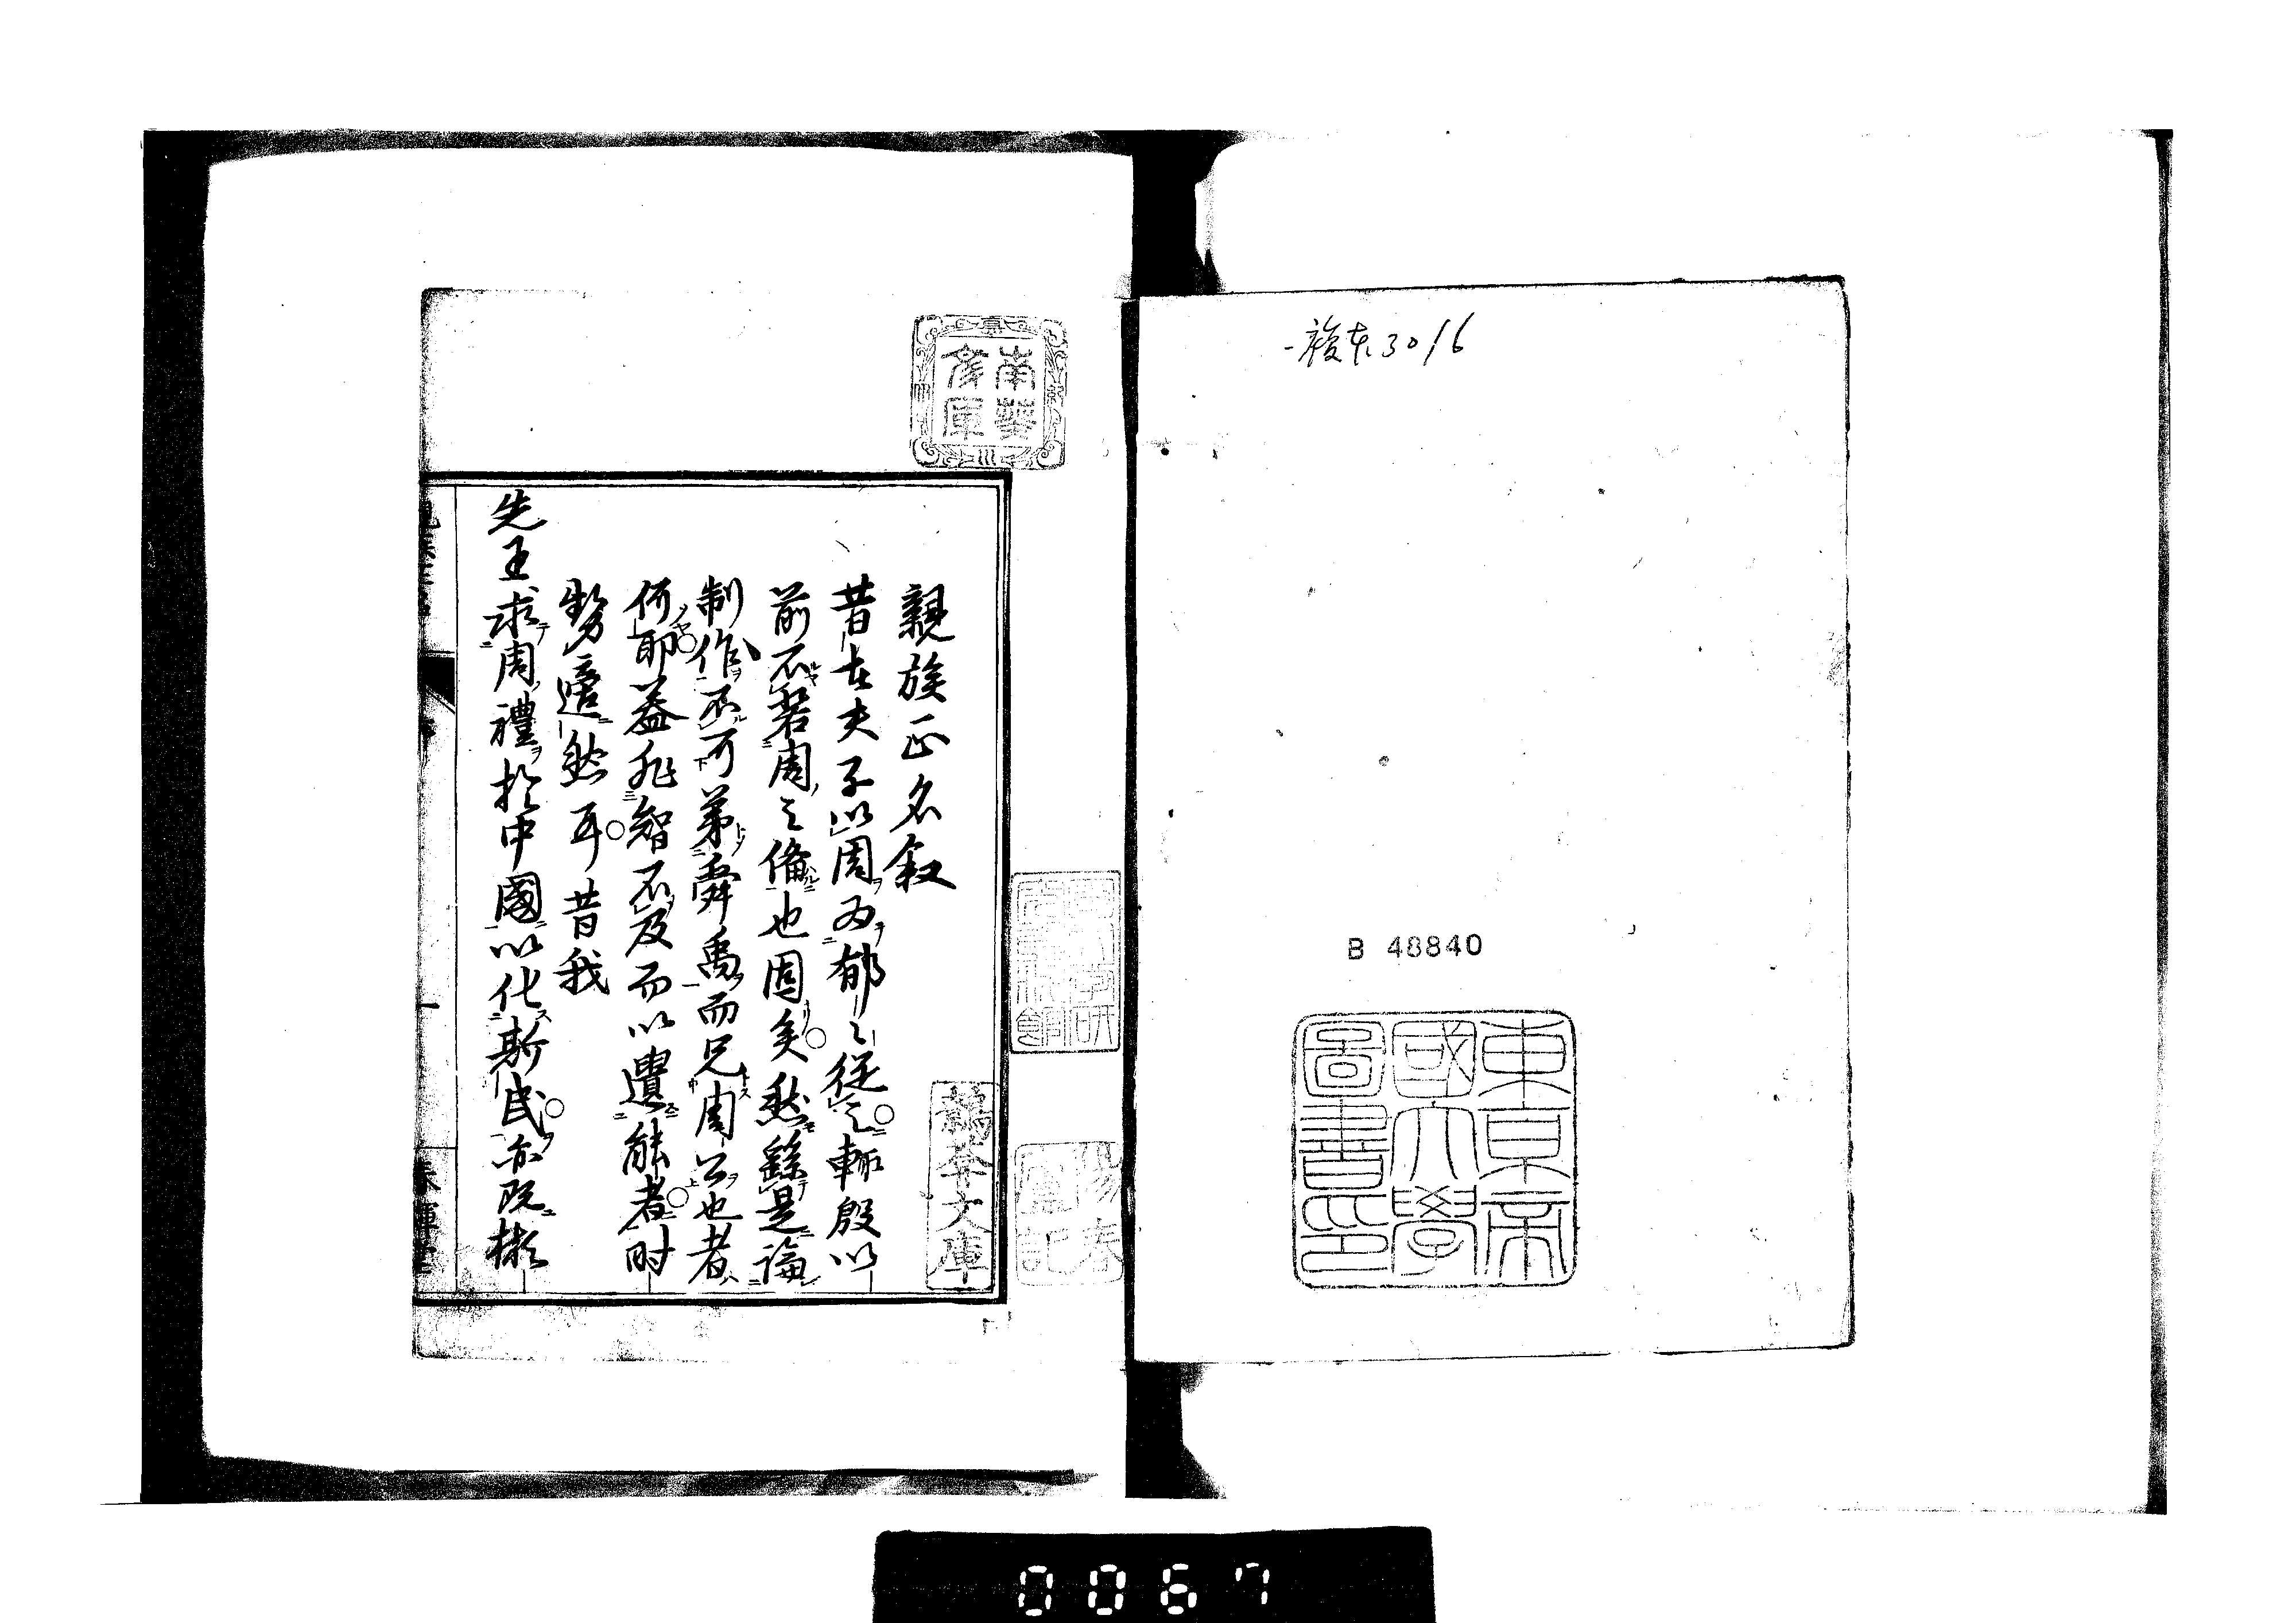 複本3016
B 48840
東京帝
國大學
圖書印
南葵
文庫
陽春
廬記
親族正名叙
昔在夫子以周為郁〻従之輙殷以
前不若周之備也固矣然繇是論
制作不可弟舜禹而兄周公也者
何耶蓋非智不及而以遺能者时
勢適然耳昔我
先王求周禮於中國以化斯民亦既彬
文庫
一
0067